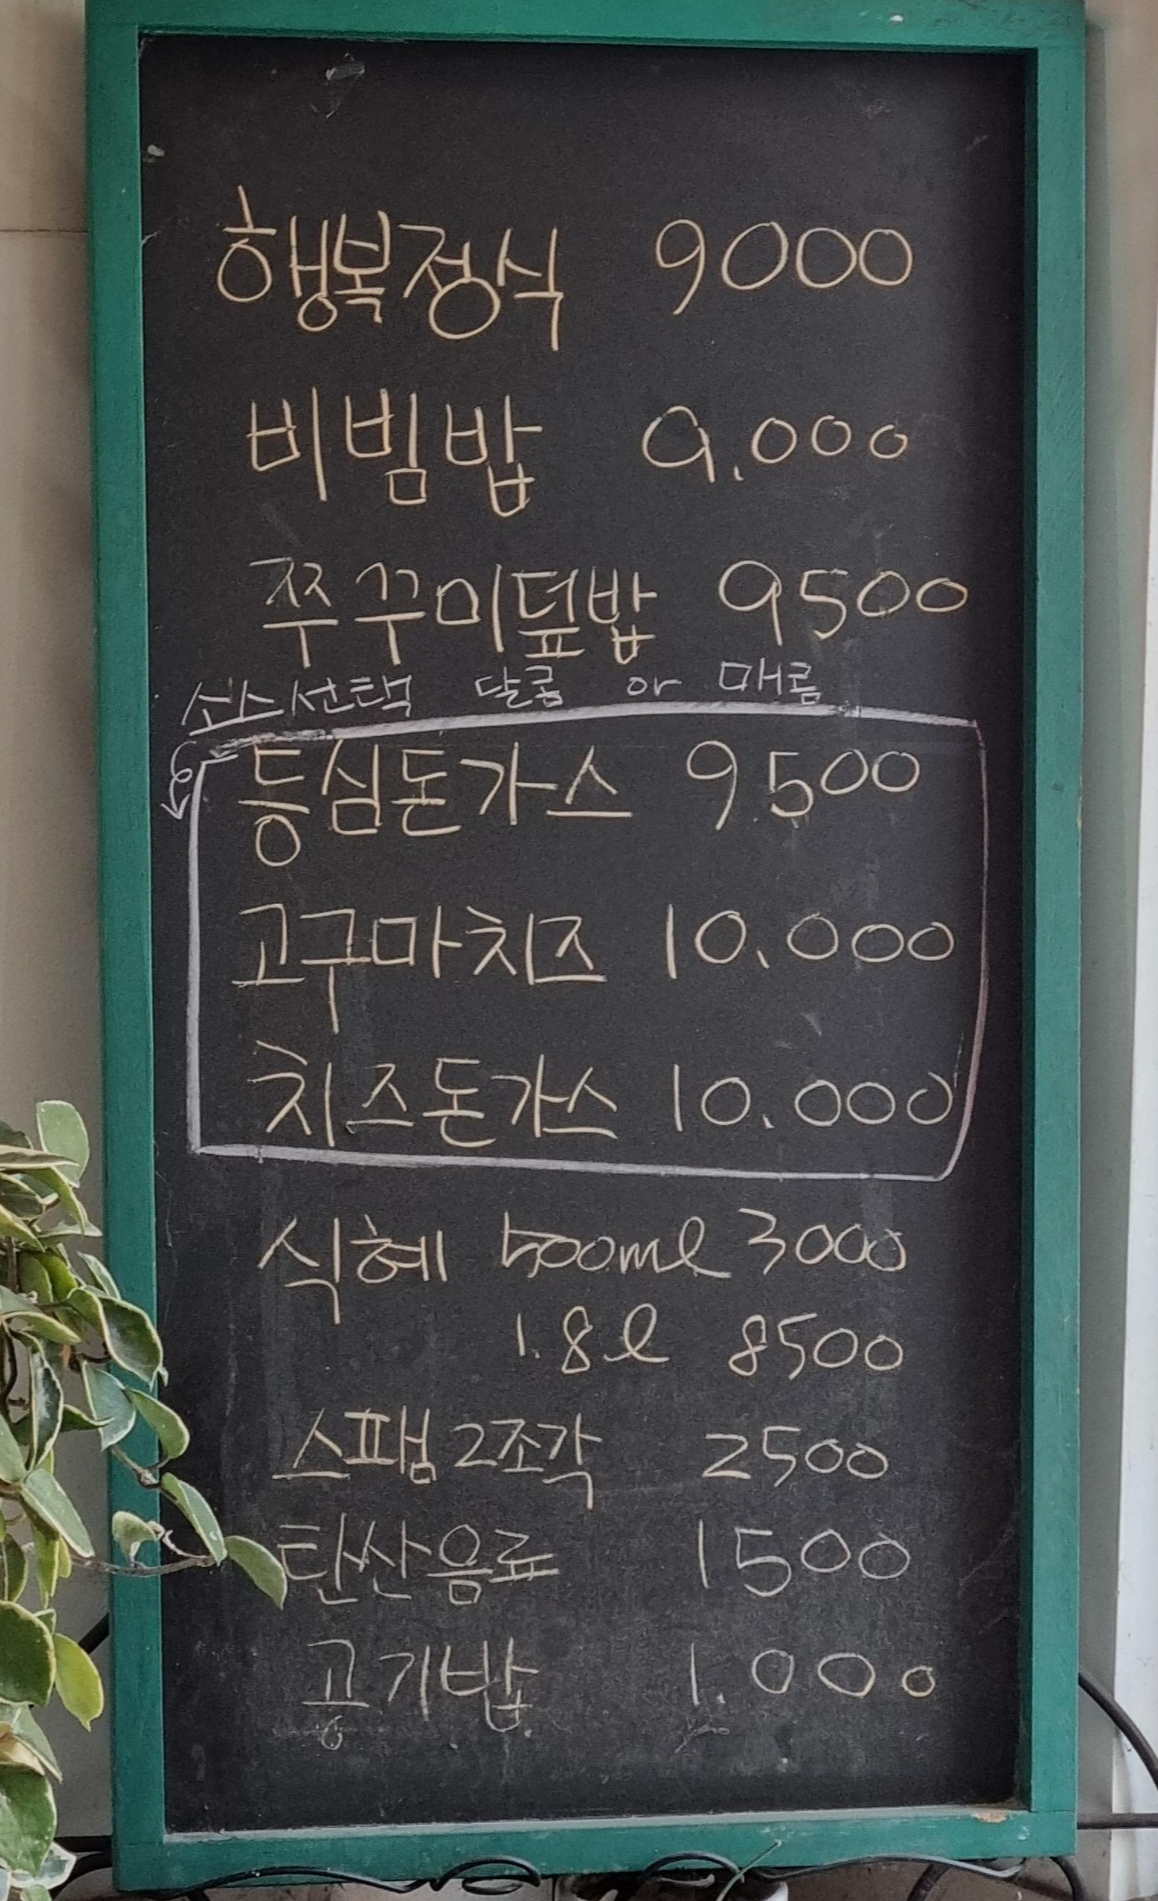 행복정식 9000
비빔밥 9.000
쭈꾸미덮밥 9500
소스선택 달콤 or 매콤
등심돈가스 9500
고구마치즈 10.000
치즈돈가스 10.000
식혜 500ml 3000
1.8l 8500
스팸2조각 2500
탄산음료 1500
공기밥 1.000